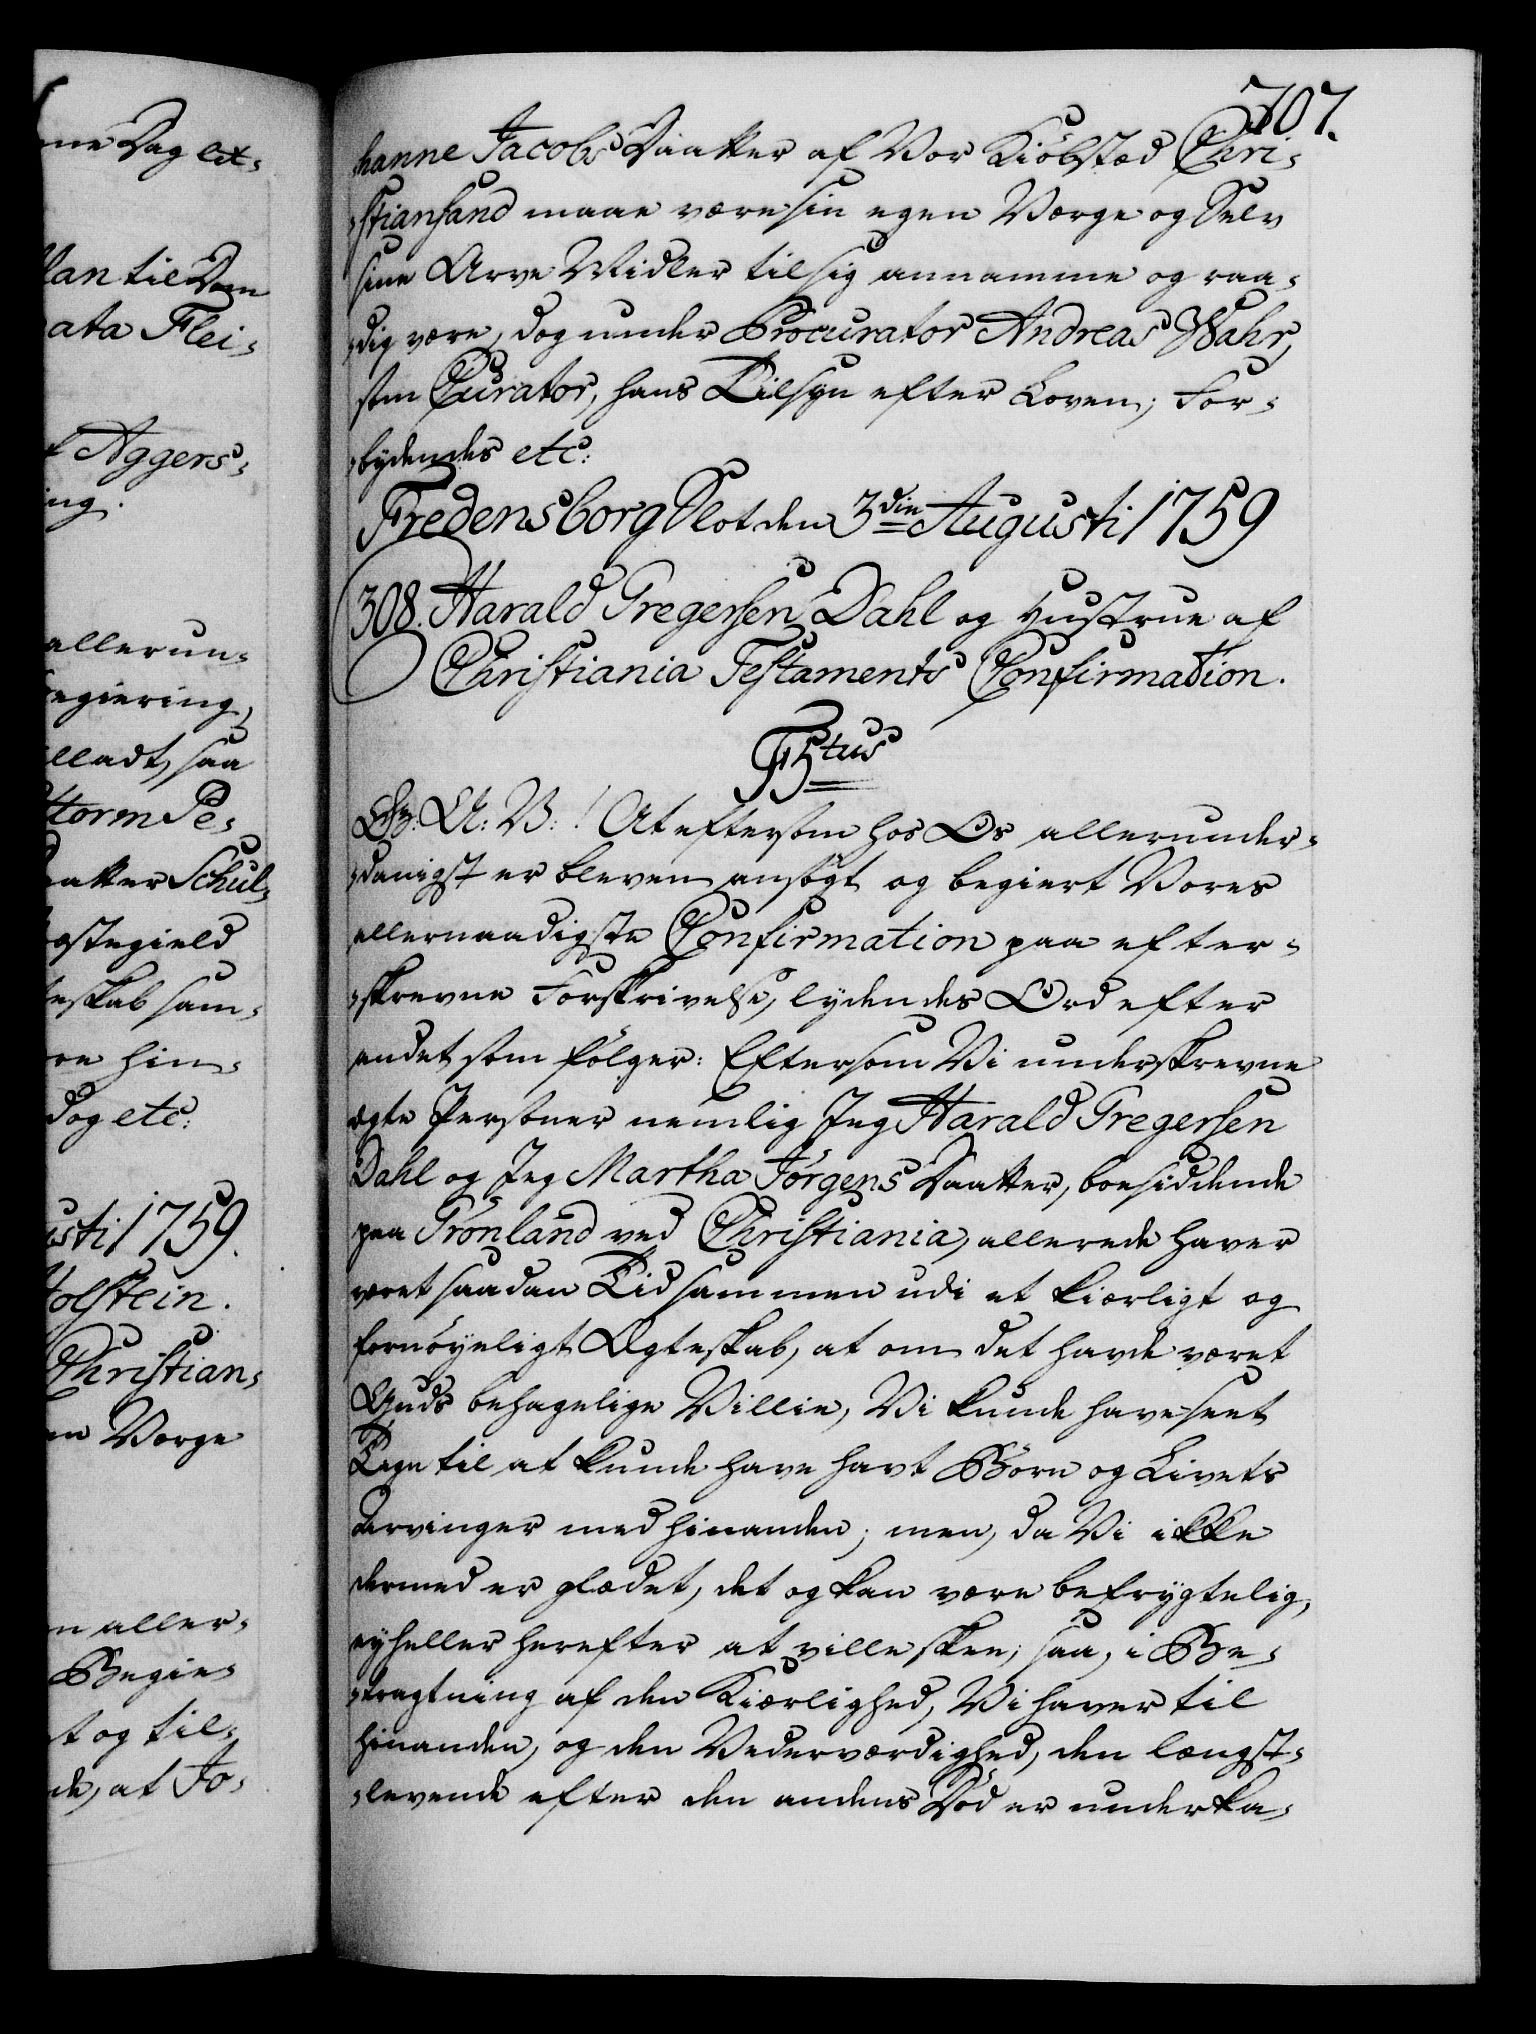 707.
hanne Jacobs Daatter af Vor Kiöbstæd Chri-
stiansand maae være sin egen Værge og Selv
sine Arve Midler til sig annamme og raa-
dig være, dog under Procurator Andreas Wahr,
som Curator, hans Tilsyn efter Loven; For-
bydendes etc:
Fredensborg Slot den 3die Augusti 1759
308. Harald Gregersen Dahl og Hustrue af
Christiania Testaments Confirmation.
F5tus
G: A: V: ! At eftersom hos Os allerunder-
danigst er bleven ansögt og begiert Vores
allernaadigste Confirmation paa efter-
skrevne Forskrivelse, lydendes Ord efter
andet som fölger: Eftersom Vi underskrevne
ægte Personer nemlig Jeg Harald Gregersen
Dahl og Jeg Martha Jörgens Daatter, boesiddende
paa Grönland ved Christiania, allerede haver
været saadan Tid sammen udi et kiærligt og
fornöyeligt Ægteskab, at om det havde været
Guds behagelige Villie, Vi kunde have seet
Tegn til at kunde have havt Börn og Livets
Arvinger med hinanden; men, da Vi ikke
dermed er glædet, det og kan være befrygtelig,
ey heller herefter at ville skee; saa, i Be-
tragtning af den Kiærlighed, Vi haver til
hinanden, og den Vederværdighed, den længst-
levende efter den andens Död er underka-
nne Dag ex-
lan til Dom
ata Flei-
f Aggers-
ing.
allerun-
egiering,
lladt, saa
torm Pe-
aatter Schul-
æstegield
teskab sam-
re hin-
dog etc:
usti 1759.
Holstein.
Christian-
en Værge
n aller-
Begie-
t og til-
de, at Jo-